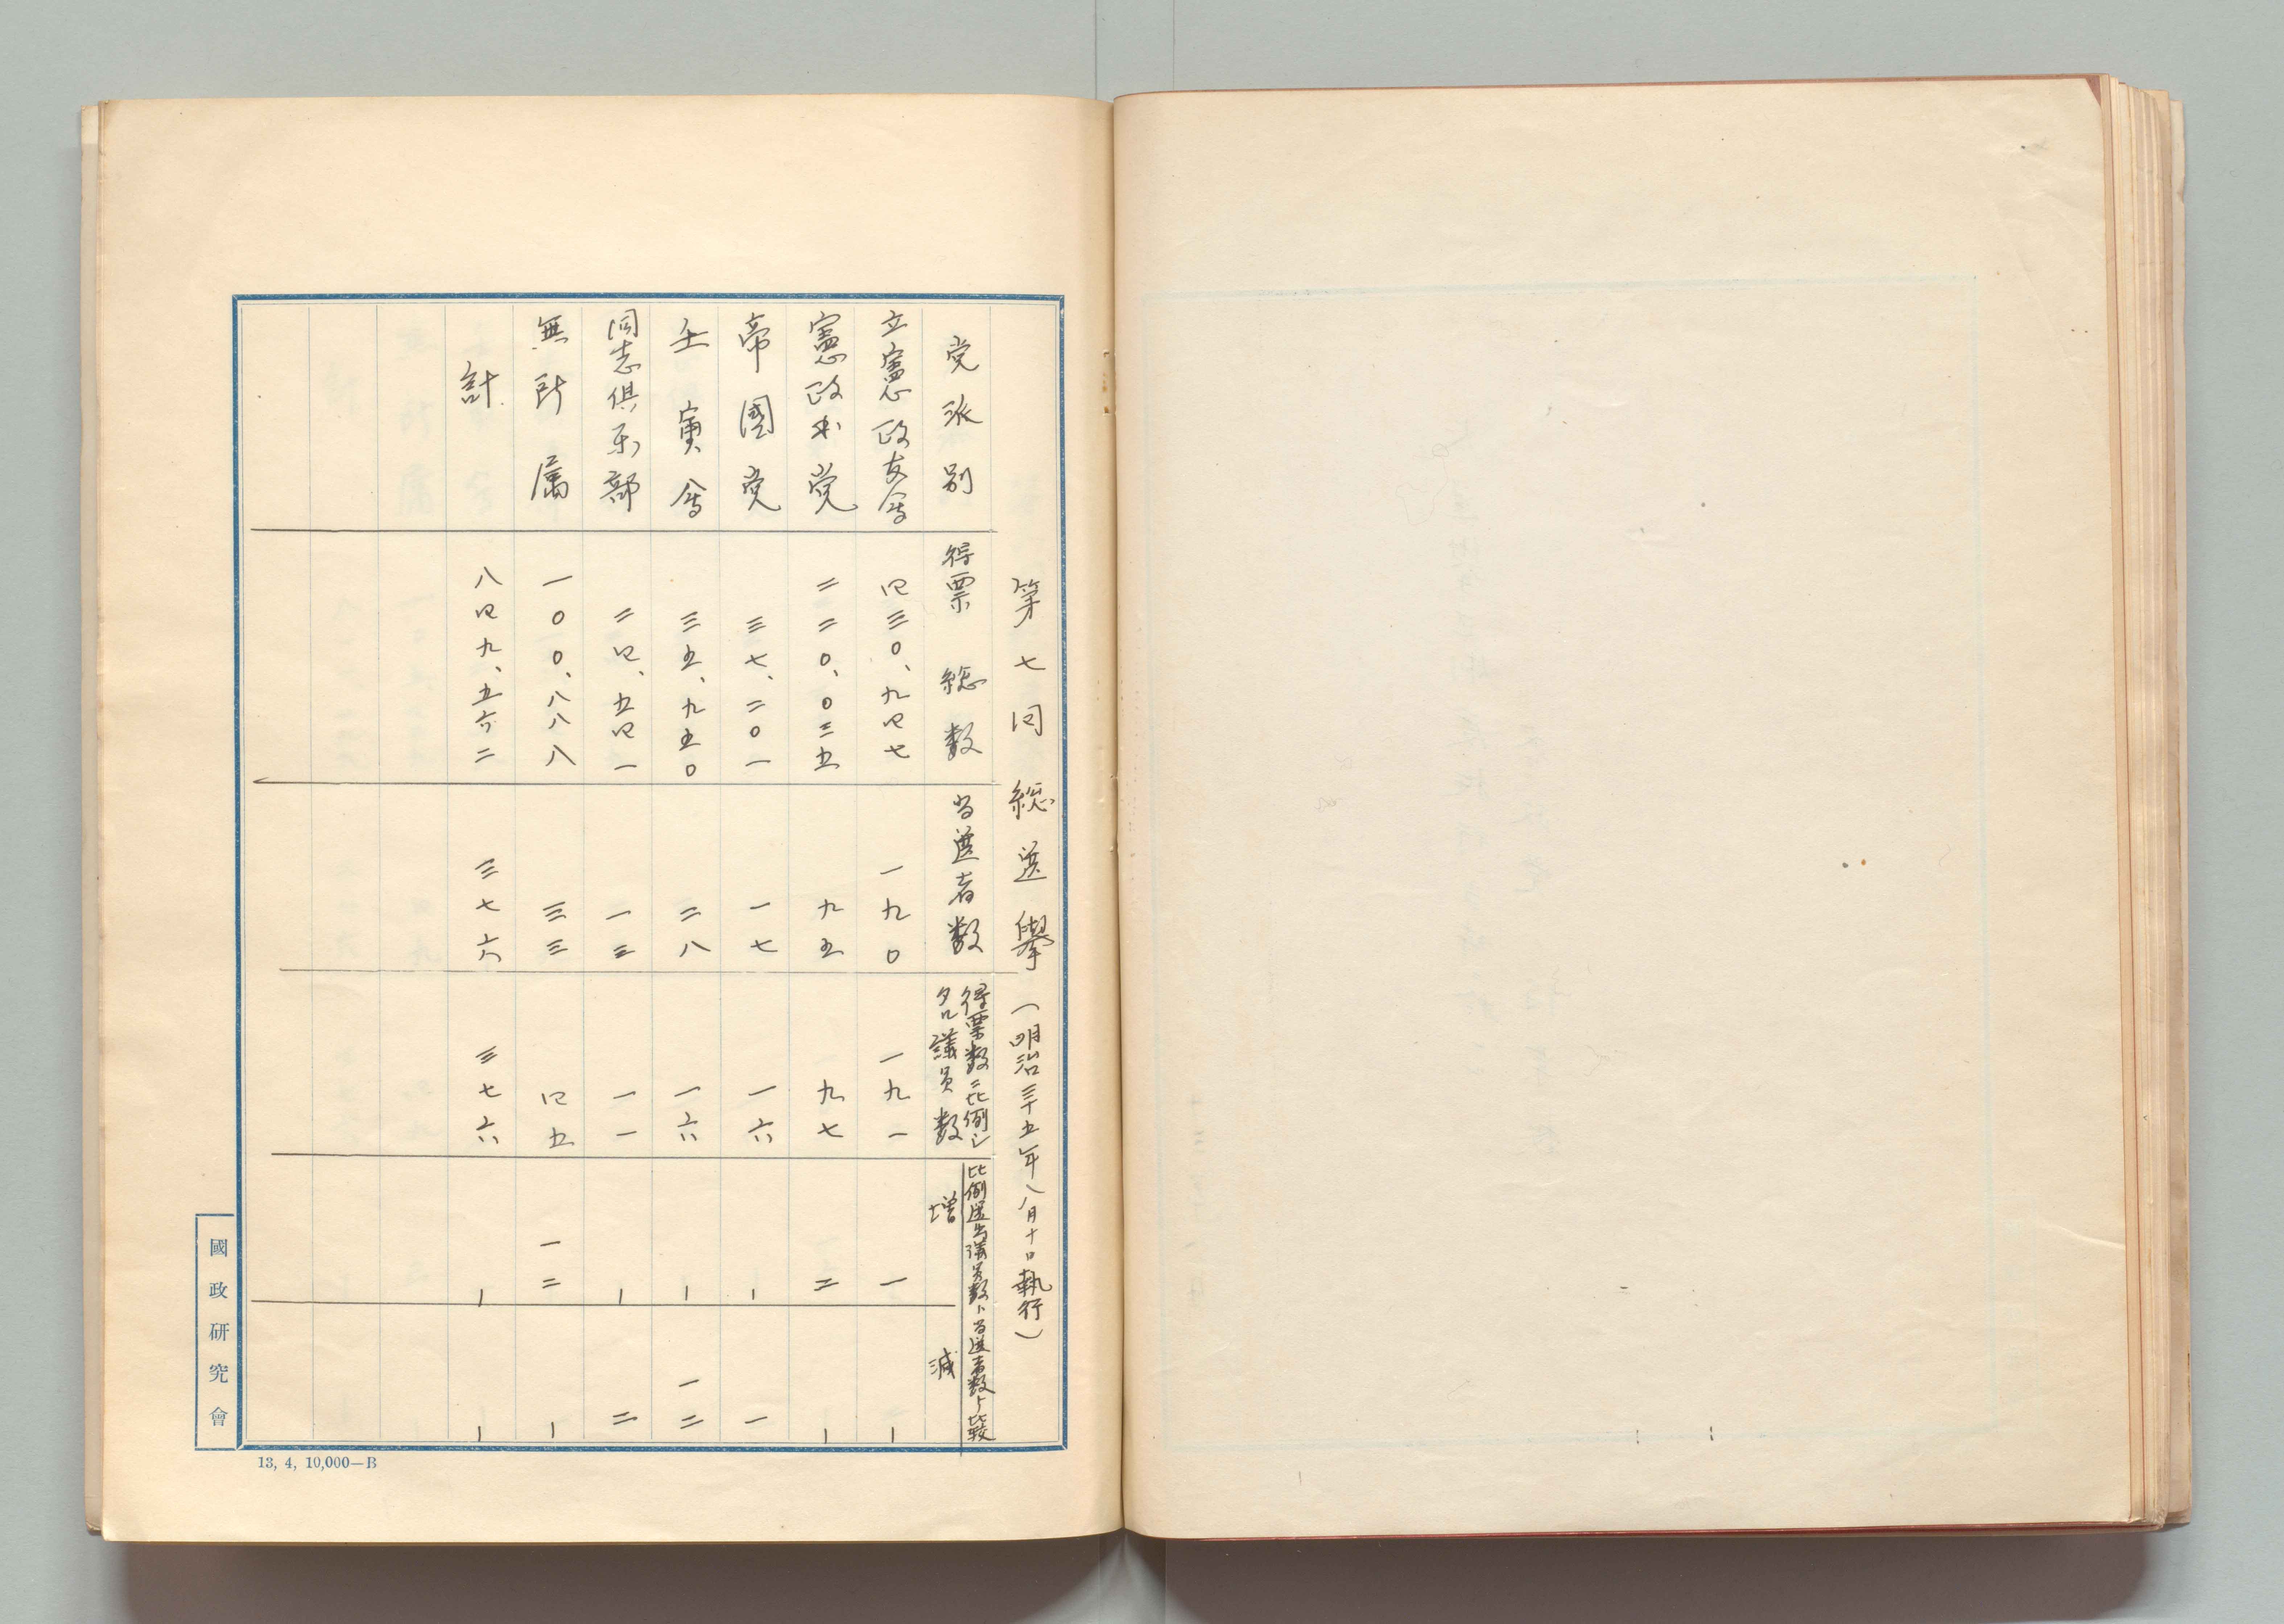 第七回総選擧（明治三十五年八月十日執行）
党派別　得票総数　当選者数　得票数ニ比例シタル議員数　比例選出議員数ト当選者数ト比較　増　減
立憲政友会　四三〇、九四七　一九〇　一九一　一　｜
憲政本党　二二〇、〇三五　九五　九七　二　｜
帝國党　三七、二〇一　一七　一六　｜　一
壬寅会　三五、九五〇　二八　一六　｜　一二
同志倶楽部　二四、五四一　一三　一一　｜　二
無所属　一〇〇、八八八　三三　四五　一二　｜
計　八四九、五六二　三七六　三七六　｜　｜
國政研究會
13, 4, 10,000—B